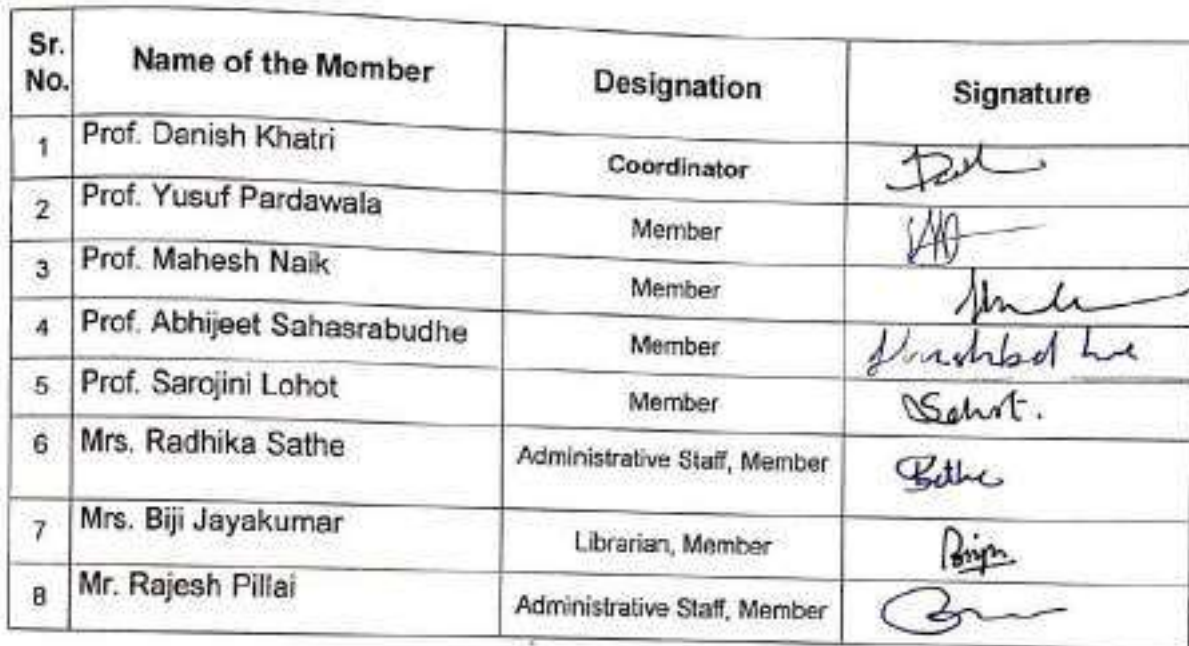 Sr. No. Name of the Member Designation Signature
1 Prof. Danish Khatri Coordinator
2 Prof. Yusuf Pardawala Member
3 Prof. Mahesh Naik Member
4 Prof. Abhijeet Sahasrabudhe Member
5 Prof. Sarojini Lohot Member
6 Mrs. Radhika Sathe Administrative Staff, Member
7 Mrs. Biji Jayakumar Librarian, Member
8 Mr. Rajesh Pillai Administrative Staff, Member